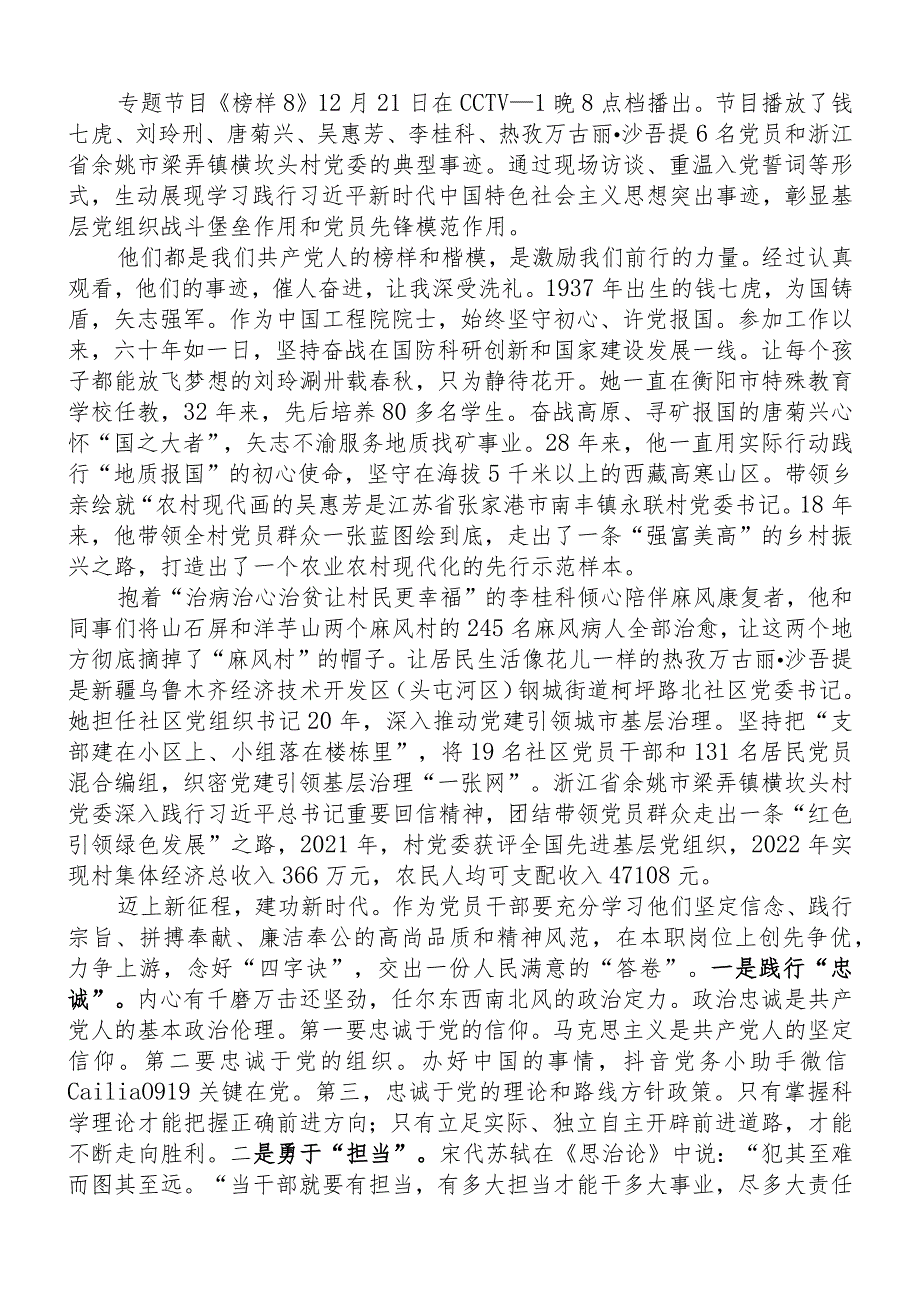 专题节目《榜样8》12月21日在CCTV—1晚8点档播出。节目播放了钱
七虎、刘玲刑、唐菊兴、吴惠芳、李桂科、热孜万古丽•沙吾提6名党员和浙江
省余姚市梁弄镇横坎头村党委的典型事迹。通过现场访谈、重温入党誓词等形
式，生动展现学习践行习近平新时代中国特色社会主义思想突出事迹，彰显基
层党组织战斗堡垒作用和党员先锋模范作用。
他们都是我们共产党人的榜样和楷模，是激励我们前行的力量。经过认真
观看，他们的事迹，催人奋进，让我深受洗礼。1937年出生的钱七虎，为国铸
盾，矢志强军。作为中国工程院院士，始终坚守初心、许党报国。参加工作以
来，六十年如一日，坚持奋战在国防科研创新和国家建设发展一线。让每个孩
子都能放飞梦想的刘玲涮卅载春秋，只为静待花开。她一直在衡阳市特殊教育
学校任教，32年来，先后培养80多名学生。奋战高原、寻矿报国的唐菊兴心
怀“国之大者”，矢志不渝服务地质找矿事业。28年来，他一直用实际行动践
行“地质报国”的初心使命，坚守在海拔5千米以上的西藏高寒山区。带领乡
亲绘就“农村现代画的吴惠芳是江苏省张家港市南丰镇永联村党委书记。18年
来，他带领全村党员群众一张蓝图绘到底，走出了一条“强富美高”的乡村振
兴之路，打造出了一个农业农村现代化的先行示范样本。
抱着“治病治心治贫让村民更幸福”的李桂科倾心陪伴麻风康复者，他和
同事们将山石屏和洋芋山两个麻风村的245名麻风病人全部治愈，让这两个地
方彻底摘掉了“麻风村”的帽子。让居民生活像花儿一样的热孜万古丽•沙吾提
是新疆乌鲁木齐经济技术开发区（头屯河区）钢城街道柯坪路北社区党委书记。
她担任社区党组织书记20年，深入推动党建引领城市基层治理。坚持把“支
部建在小区上、小组落在楼栋里”，将19名社区党员干部和131名居民党员
混合编组，织密党建引领基层治理“一张网”。浙江省余姚市梁弄镇横坎头村
党委深入践行习近平总书记重要回信精神，团结带领党员群众走出一条“红色
引领绿色发展”之路，2021年，村党委获评全国先进基层党组织，2022年实
现村集体经济总收入366万元，农民人均可支配收入47108元。
迈上新征程，建功新时代。作为党员干部要充分学习他们坚定信念、践行
宗旨、拼搏奉献、廉洁奉公的高尚品质和精神风范，在本职岗位上创先争优，
力争上游，念好“四字诀”，交出一份人民满意的“答卷”。一是践行“忠
诚”。内心有千磨万击还坚劲，任尔东西南北风的政治定力。政治忠诚是共产
党人的基本政治伦理。第一要忠诚于党的信仰。马克思主义是共产党人的坚定
信仰。第二要忠诚于党的组织。办好中国的事情，抖音党务小助手微信
Cailia0919关键在党。第三，忠诚于党的理论和路线方针政策。只有掌握科
学理论才能把握正确前进方向；只有立足实际、独立自主开辟前进道路，才能
不断走向胜利。二是勇于“担当”。宋代苏轼在《思治论》中说：“犯其至难
而图其至远。“当干部就要有担当，有多大担当才能干多大事业，尽多大责任